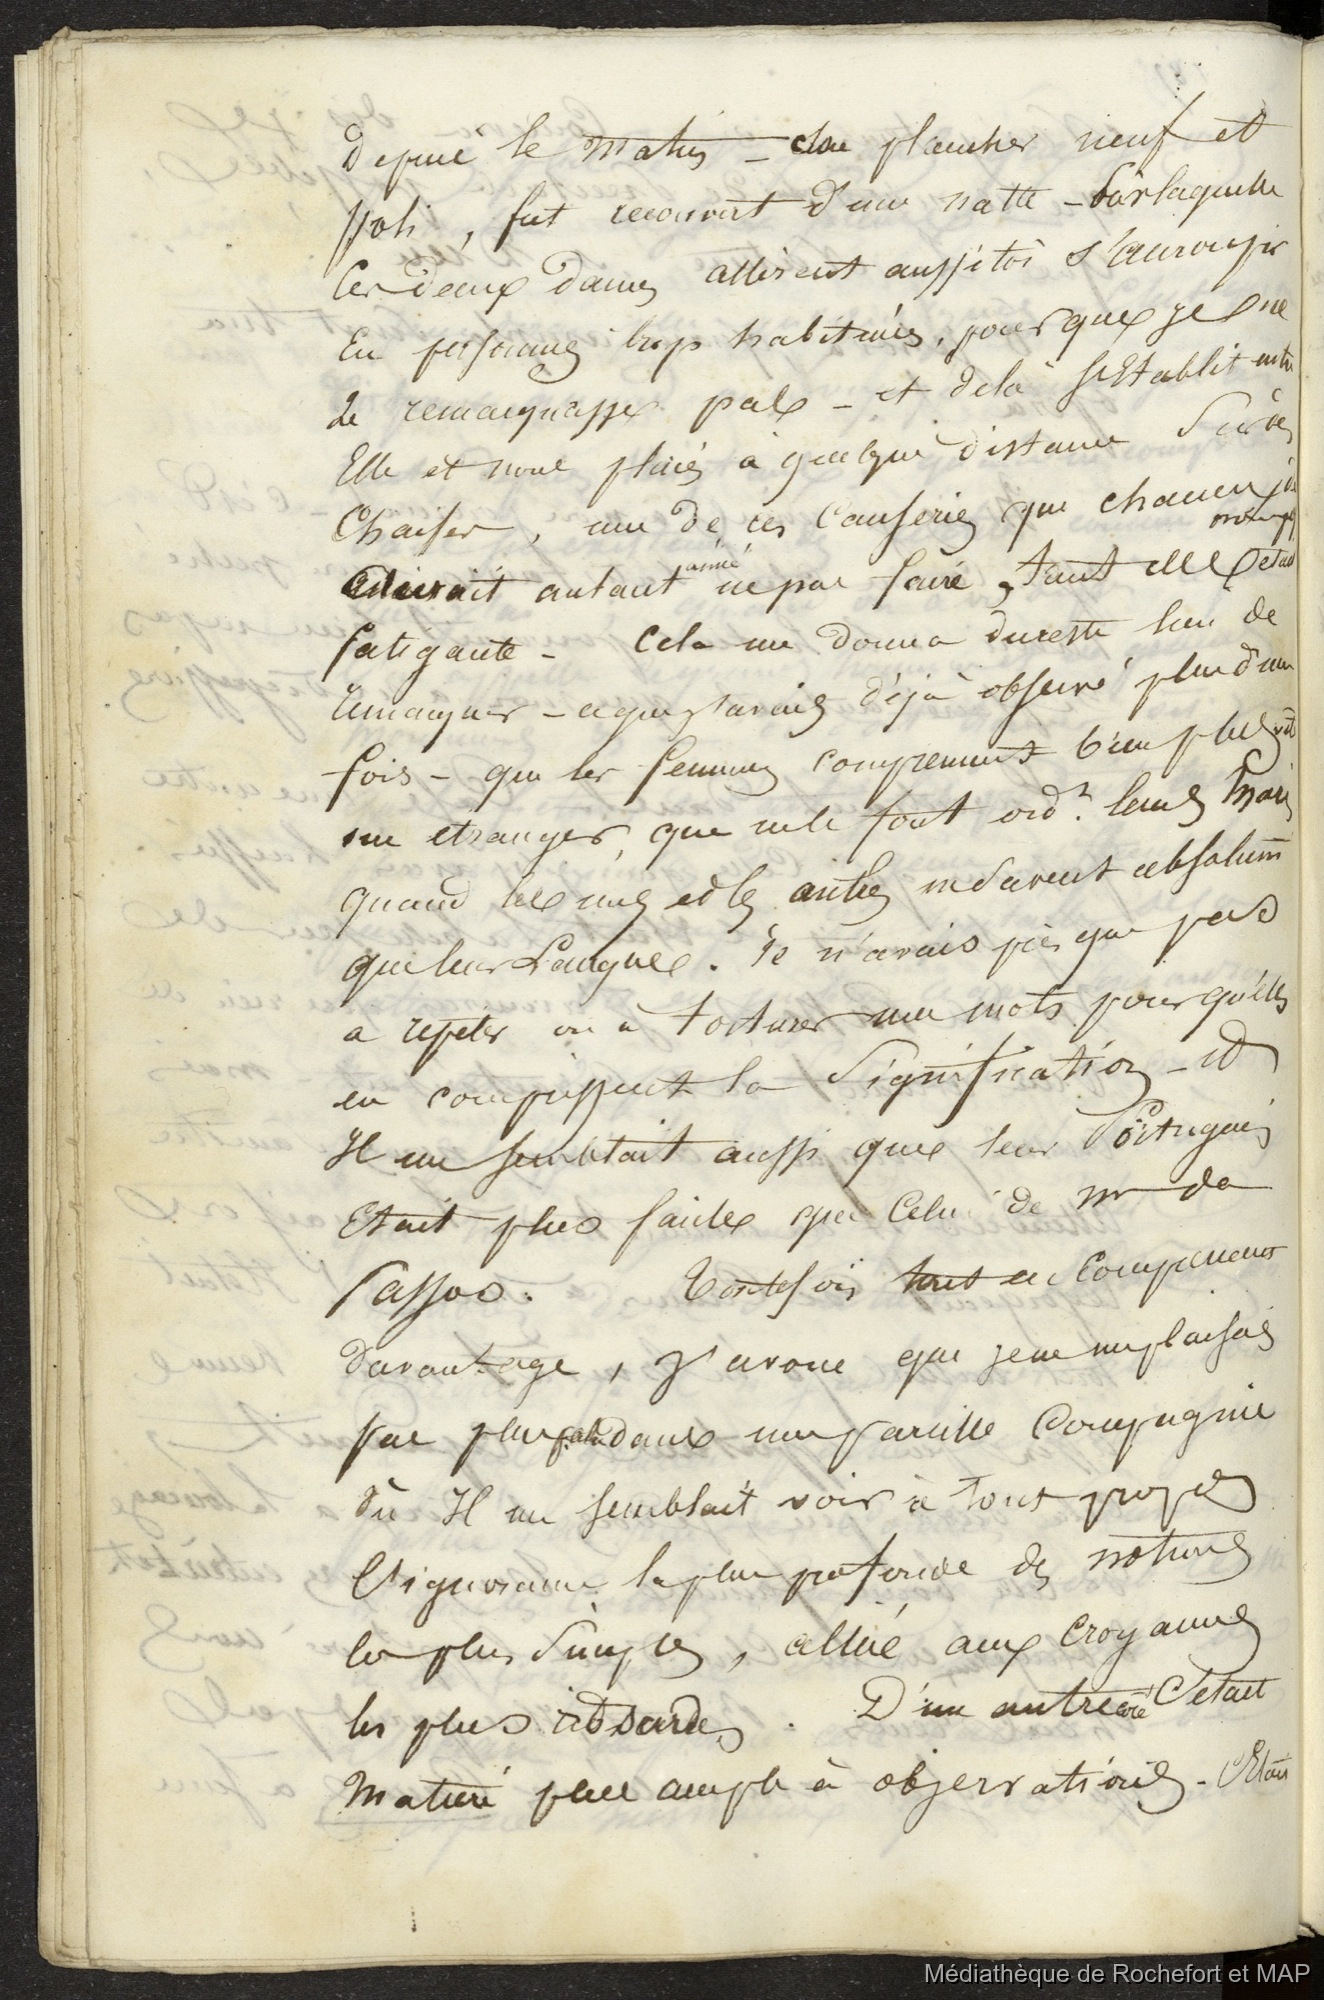 Depuis le matin - du plancher neuf et
poli, fut recouvert d'une natte - sur laquelle
les deux dames allèrent aussitôt s'accroupir
En personnes trop habituées, pour que je ne
le remarquasse pas - et delà s'Etablit entre
Elle et nous placés à quelque distance sur des
Chaises, une de ces causeries que chacun
aurait autant aimé ne pas faire, tant elle etait
fatigante - Cela me donna dureste lieu de
remarquer - ce que j'avais déjà observé plus d'une
fois - que les femmes comprennent bien plus vite
un etranger, que ne le font ordre. leurs maris
quand les uns et les autres ne savent absolumt
que leur Langue. Je n'avais presque pas
a repeter ou à torturer mes mots pour qu'elles
en comprissent la signification - et
Il me semblait aussi que leur Portugais
Etait plus facile que Celui de mr da
Passos. Toutefois tout en comprenant
davantage, j'avoue que je ne me plaisais
pas plus dans une pareille Compagnie
où Il me semblait voir à tout propos
l'ignorance la plus profonde des notions
les plus simples, alliée aux croyances
les plus absurdes. D'un autre côté C'etait
Matière plus ample à observations. C'Etait
Médiathèque de Rochefort et MAP